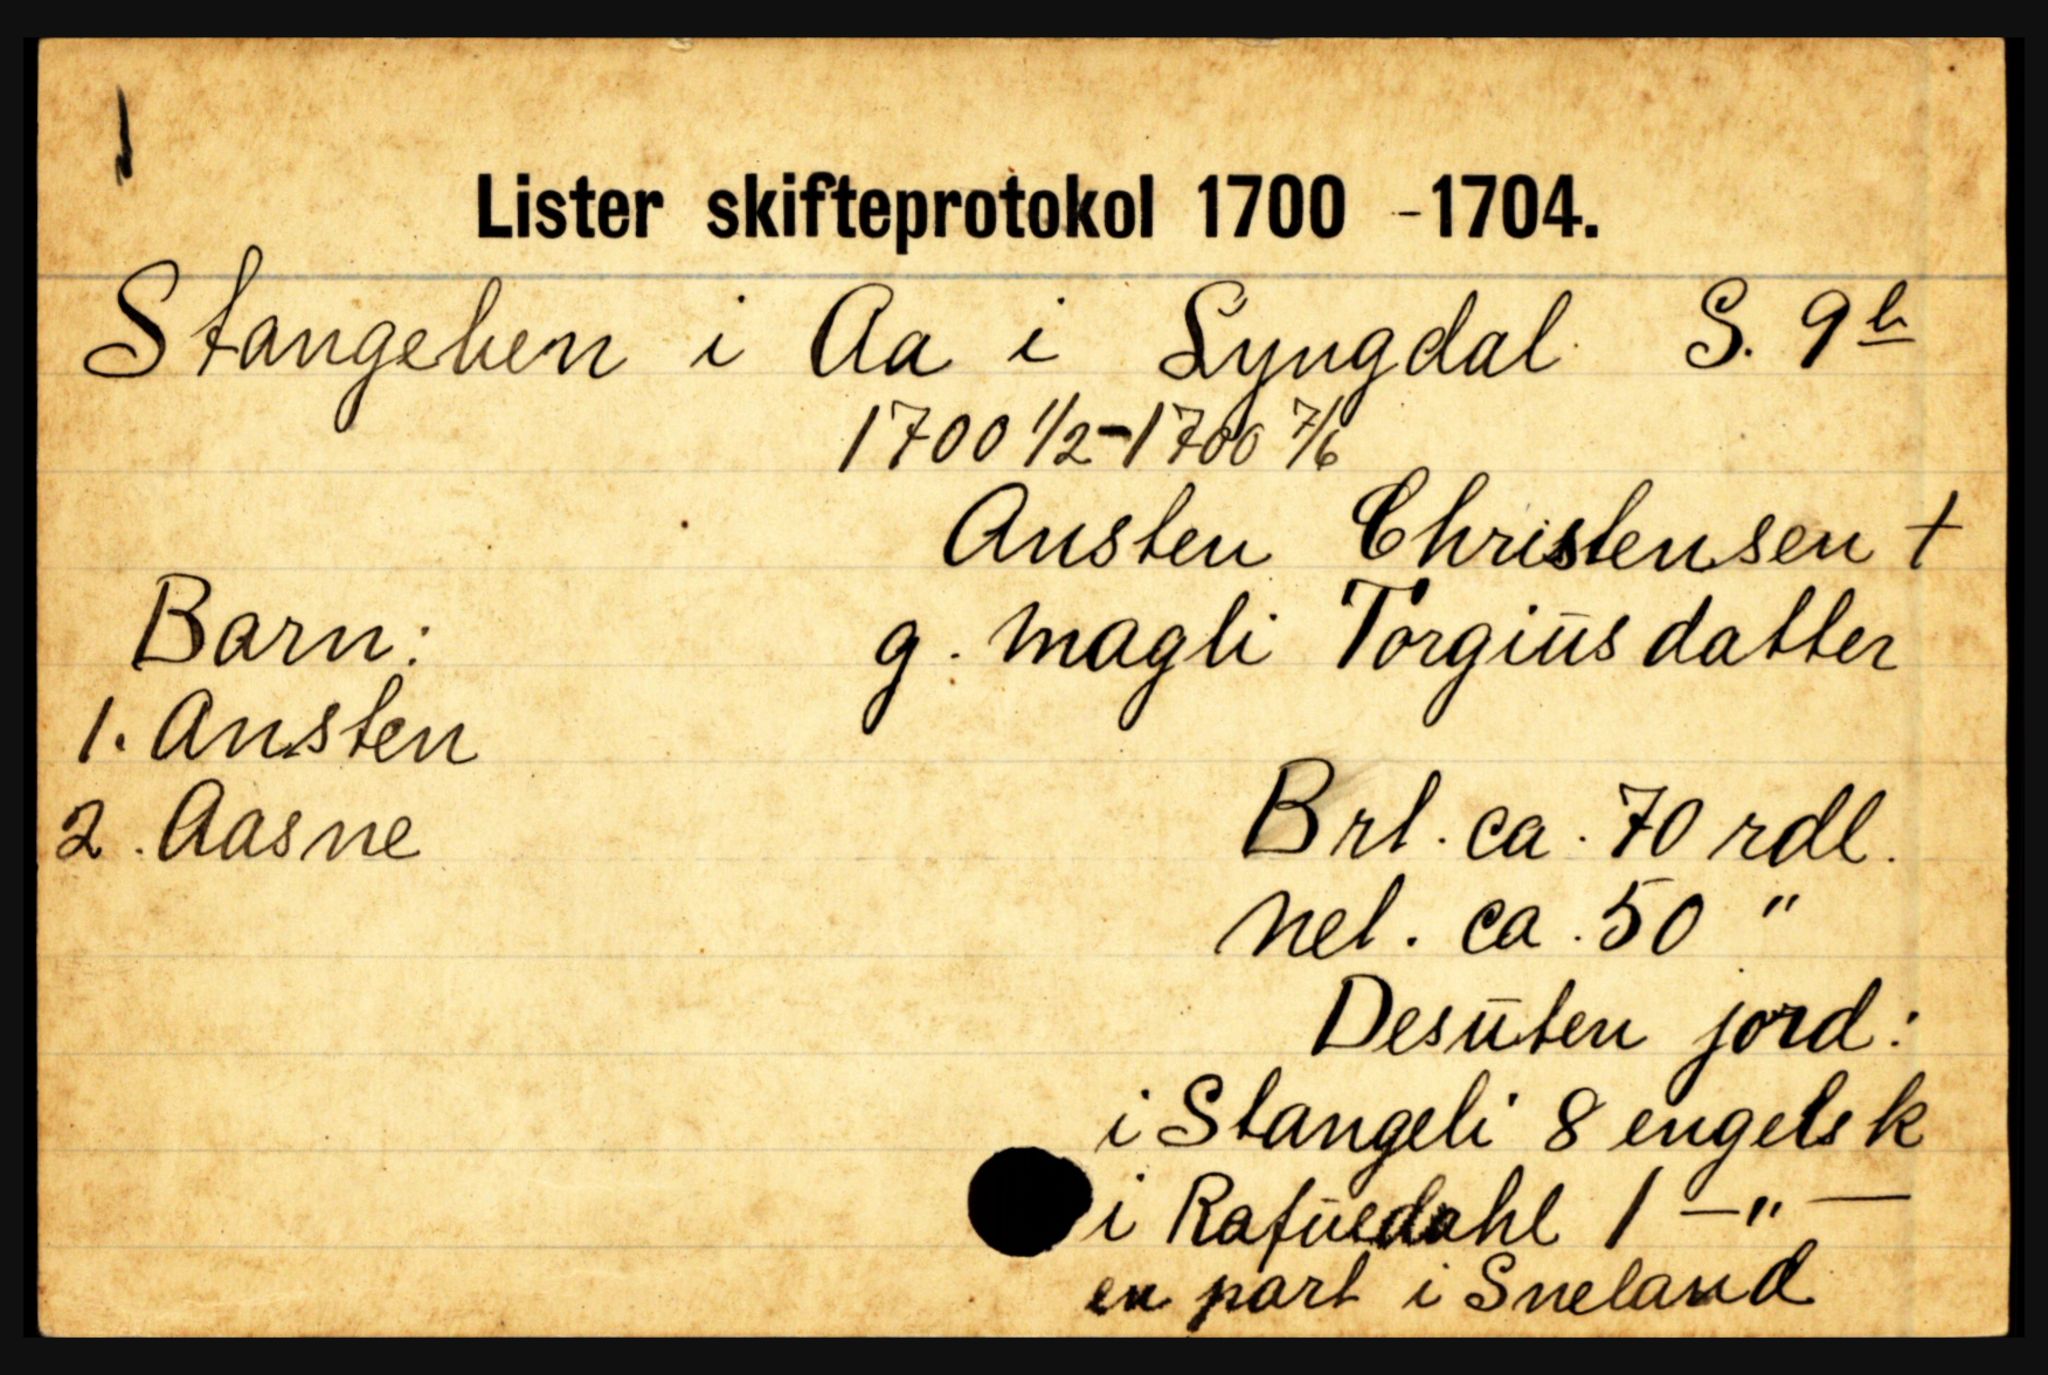 Lister skifteprotokol 1700 - 1704.
Stangelien i Aa i Lyngdal S. 9 b
1700 1/2 - 1700 7/6
Ansten Christensen +
Barn: g. Magli Torgiūsdatter
1. Ansten
2. Aasne Brl. ca. 70 rdl.
Nel. ca. 50 "
Desūten jord:
i Stangeli 8 engelsk
i Rafūedahl 1 — " —
en part i Sneland